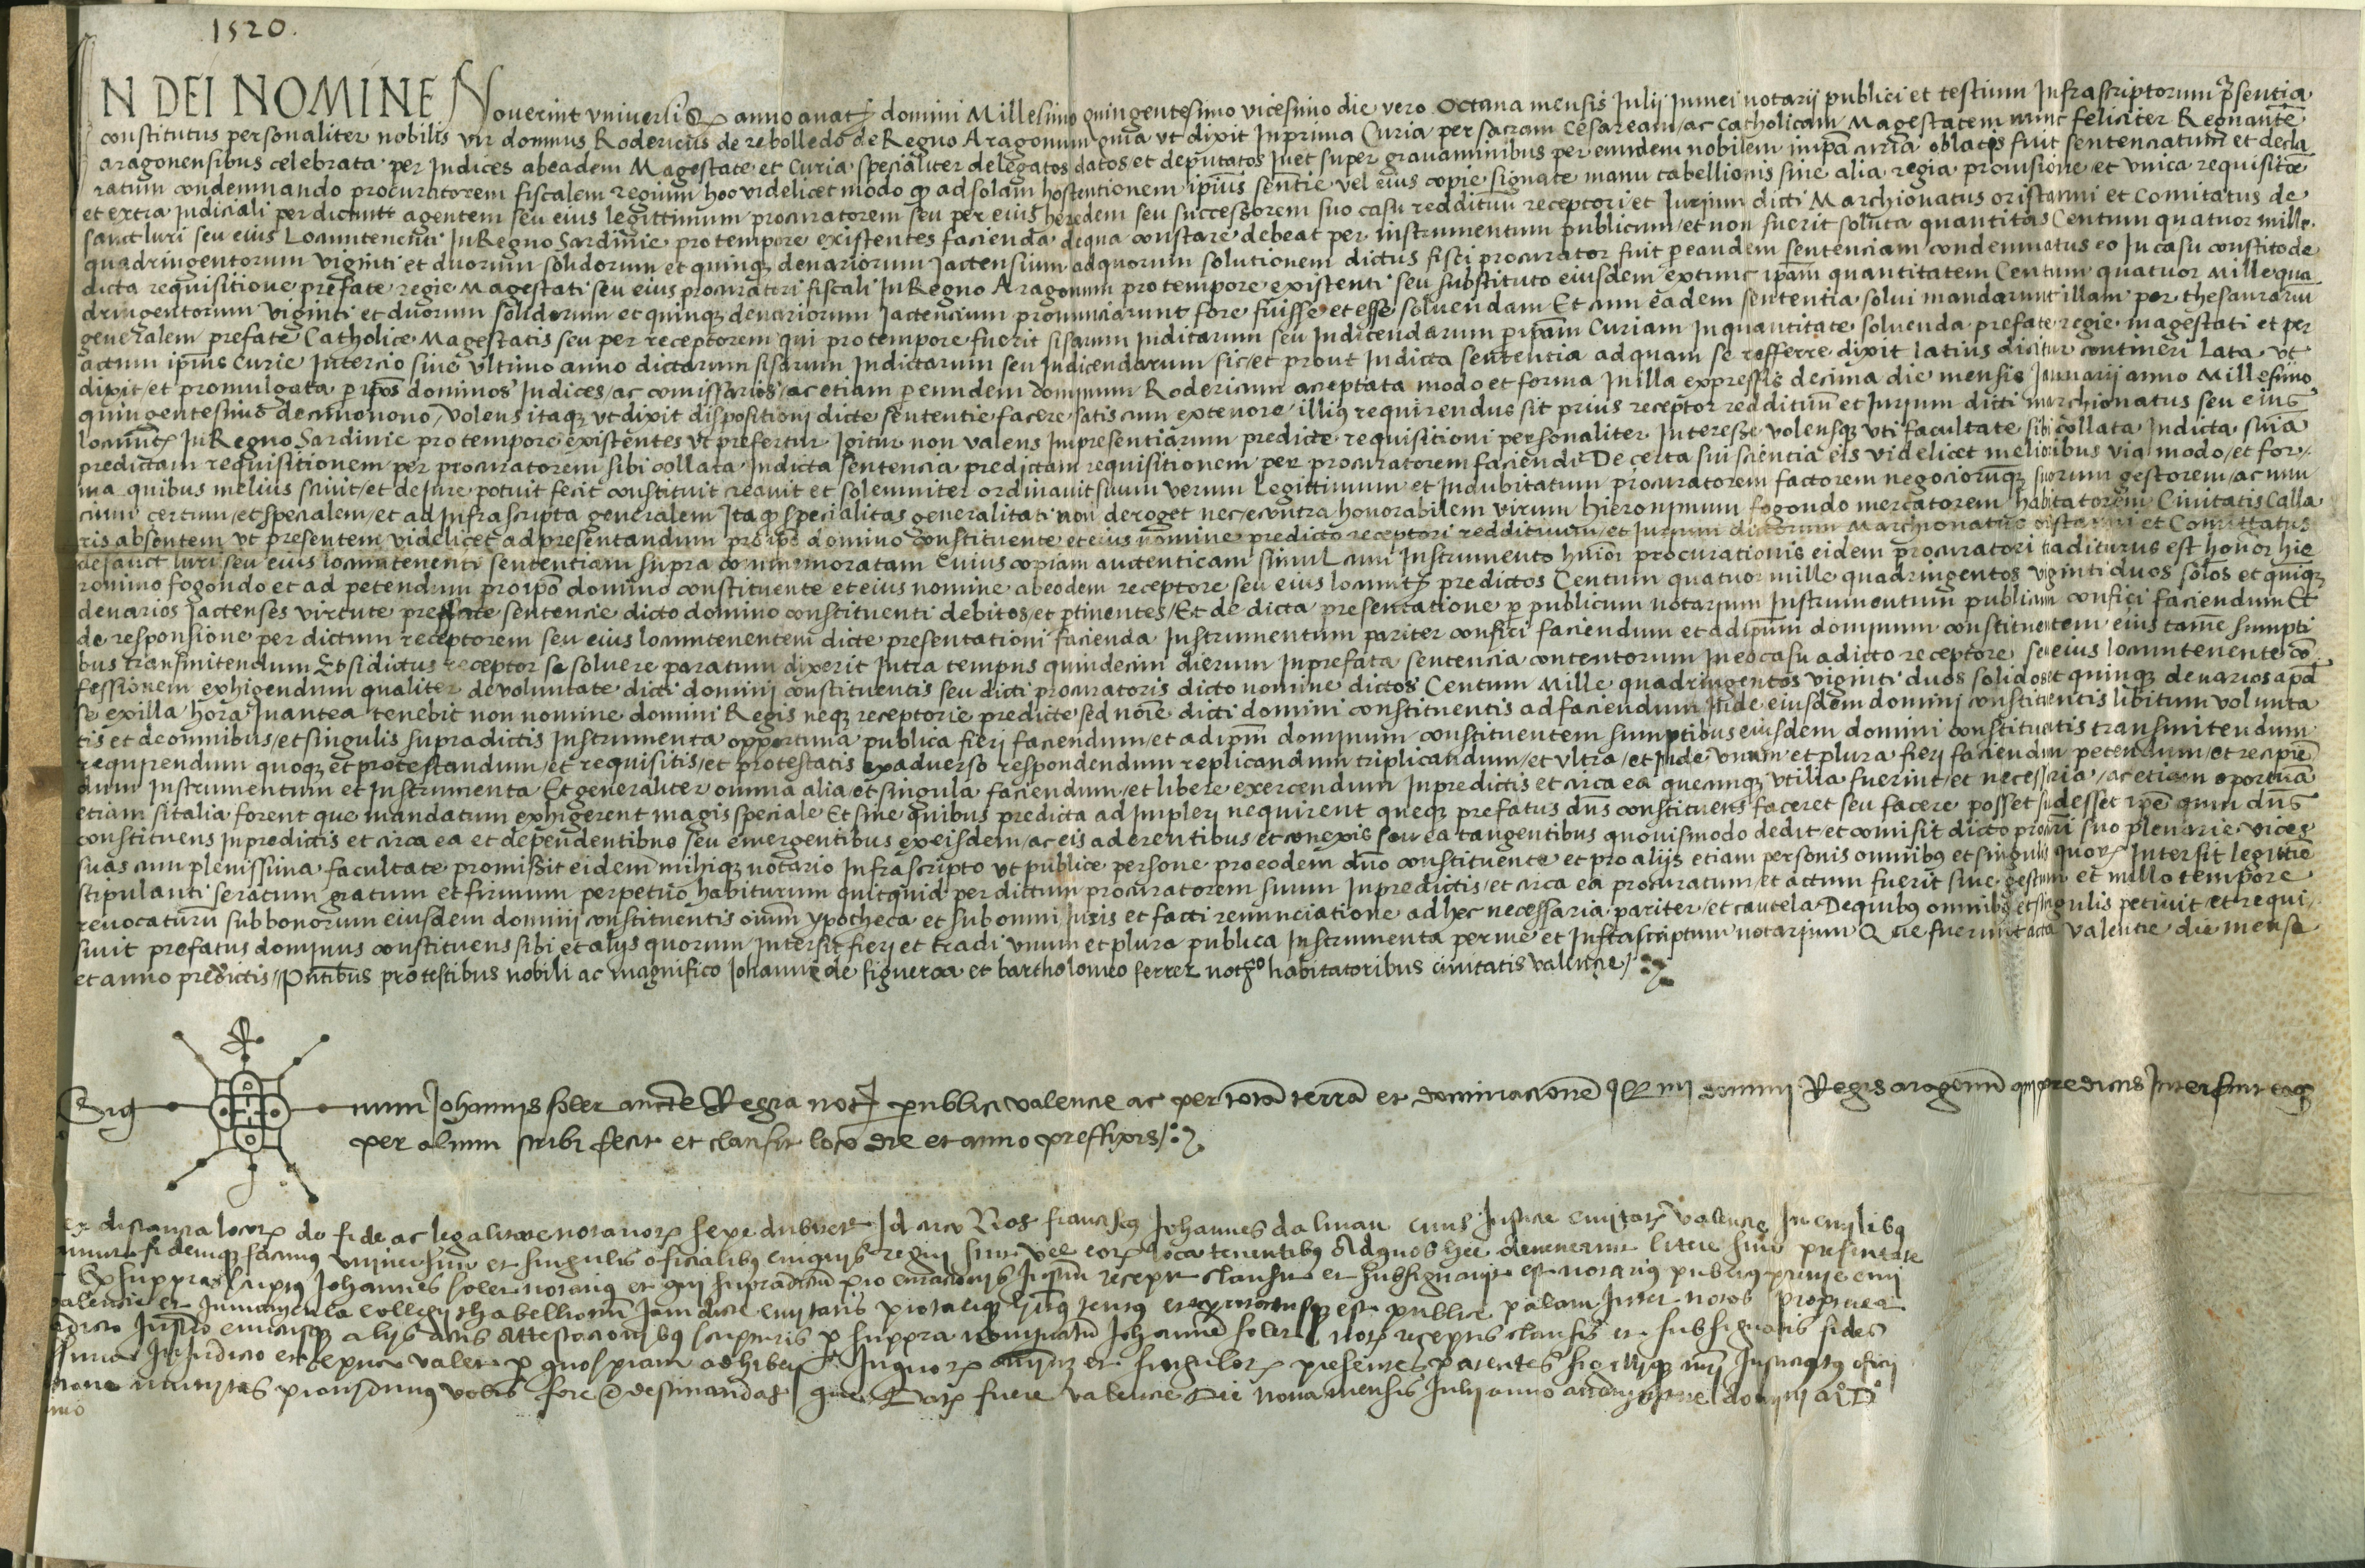 1520.
IN DEI NOMINE Noverint universi Qɜ anno anatɜ domini Millesimo quingentesimo vicesimo die vero Octava mensis Julij In mei notarii publici et testium Infrascriptorum p̄sentia
constitutus personaliter nobilis vir domnus Rodericus de rebolledo de Regno Aragonum quia ut dixit In prima Curia per sacram Cesaream / ac catholicam Magestatem nunc feliciter Regnantē
aragonensibus celebrata per Judices ab eadem Magestate et Curia specialiter delegatos datos et deputatos In et super gravaminibus per eundem nobilem in ip̄a curia oblatis fuit sentenciatum et decla
ratum condemnando procuratorem fiscalem regium hoc videlicet modo ꝙ ad solam hostentionem ipsius sentē vel eius copie signate manu tabellionis sine alia regia provisione et unica requisitōe
et extra Judiciali per dictum agentem seu eius legittimum procuratorem seu per eius heredem seu successorem suo casu reddituū receptori et Jurium dicti Marchionatus oristanni et Comitatus de
sanct luri seu eius Locuntenenti In Regno Sardinie pro tempore existentes facienda de qua constare debeat per instrumentum publicum / et non fuerit soluta quantitas Centum quatuor mille
quadringentorum viginti et duorum solidorum et quinqɜ denariorum Jactensium ad quorum solutionem dictus fisci procurator fuit p eandem sentenciam condemnatus eo In casu constito de
dicta requisitione prefate regie Magestati seu eius procuratori fiscali In Regno Aragonum pro tempore existenti seu substituto eiusdem extunc ip̄am quantitatem Centum quatuor Mille qua
dringentorum viginti et duorum solidorum et quinqɜ denariorum Jactencium pronunciarunt fore fuisse et esse solvendam Et cum eadem sententia solui mandarunt illam per thesaurariū
generalem prefate Catholice Magestatis seu per receptorem qui pro tempore fuerit sisarum Inditarum seu Indicendarum p ip̄am Curiam In quantitate solvenda prefate regie magestati et per
actum ipsius Curie In tercio sive ultimo anno dictarum sisarum Indictarum seu Indicendarum sic / et prout In dicta sententia ad quam se refferre dixit latius dicitur contineri Lata ut
dixit / et promulgata p ip̄os dominos Judices / ac comissarios / ac etiam p eundem dominum Rodericum acceptata modo et forma In illa expressis decima die mensis Januarij anno Millesimo
quingentesimo decimonono / volens itaqɜ ut dixit dispositioni dicte sententie facere satis cum ex tenore / illius requirendus sit prius receptor reddituū et Jurium dicti marchionatus seu eius
locuntɜ In Regno Sardinie pro tempore existentes ut prefertur Igitur non valens Impresentiarum predicte requisitioni personaliter Interesse volensqɜ uti facultate sibi collata In dicta sn̄ia
predictam requisitionem per procuratorem sibi collata In dicta sentencia predictam requisitionem per procuratorem faciendi De certa sui sciencia eis videlicet melioribus via modo / et for /
ma quibus melius scivit / et de Jure potuit fecit constituit creavit et solemniter ordinavit suum verum Legittimum et Indubitatum procuratorem factorem negociorumqɜ suorum gestorem / ac nun
cium certum / et specialem / et ad Infrascripta generalem Ita ꝙ specialitas generalitati non deroget nec econtra honorabilem virum hieronimum fogondo mercatorem habitatorem Civitatis Calla
ris absentem ut presentem videlicet ad presentandum pro ip̄o domino constituente et eius nomine predicto receptori reddituum / et Jurium dictorum Marchionatus oristanni et Comittatus
de sanct luri seu eius locuntenenti sententiam supra commemoratam Cuius copiam auctenticam simul cum Instrumento huiōi procurationis eidem procuratori traditurus est honoͬ hie
ronimo fogondo et ad petendum pro ip̄o domino constituente et eius nomine ab eodem receptore seu eius locuntɜ predictos Centum quatuor mille quadringentos viginti duos sol̄os et quinqɜ
denarios Jactenses virtute prefate sentencie dicto domino constituenti debitos / et ptinentes / Et de dicta presentatione p publicum notarium Instrumentum publicum confici faciendum Et
de responsione per dictum receptorem seu eius locuntenentem dicte presentationi facienda Instrumentum pariter confici faciendum et ad ip̄um dominum constituentem eius tamē sumpti
bus transmitendum Et si dictus receptor se solvere paratum dixerit Intra tempus quindecim dierum In prefata sentencia contentorum In eo casu a dicto receptore seu eius locuntenente cō
fessionem exhigendum qualiter de voluntate dicti domini constituentis seu dicti procuratoris dicto nomine dictos Centum Mille quadringentos viginti duos solidos et quinqɜ denarios apđ
se ex illa hora In antea tenebit non nomine domini Regis neqɜ receptorie predicte sed nōie dicti domini constituentis ad faciendum Inde eiusdem domini constituentis libitum volunta
tis et de omnibus / et singulis supradictis Instrumenta opportuna publica fieri faciendum / et ad ip̄m dominum constituentem sumptibus eiusdem domini constituentis transmitendum
requirendum quoqɜ et protestandum / et requisitis / et protestatis ex adverso respondendum replicandum triplicandum / et ultra / et Inde unum et plura fieri faciendum petendum / et recipiē
dum Instrumentum et Instrumenta Et generaliter omnia alia et singula faciendum / et libere exercendum In predictis et circa ea quecunqɜ utilia fuerint / et necessaria / ac etiam oportuna
etiam si talia forent que mandatum exhigerent magis speciale Et sine quibus predicta ad Impleri nequirent queqɜ prefatus dn̄s constituens faceret seu facere posset si adesset ip̄e quin dn̄s
constituens In predictis et circa ea et dependentibus seu emergentibus ex eisdem / ac eis aderentibus et conexis seu ea tangentibus quovismodo dedit et comisit dicto procurri suo plenarie vices
suas cum plenissima facultate promissit eidem mihiqɜ notario Infrascripto ut publice persone pro eodem dn̄o constituente et pro alijs etiam personis omnibus et singulis quorɜ Intersit legittīe
stipulanti se ratum gratum et firmum perpetuo habiturum quitquid per dictum procuratorem suum In predictis / et circa ea procuratum / et actum fuerit sive gestum et nullo tempore
revocaturū sub bonorum eiusdem domini constituentis oīum ypotheca et sub omni Juris et facti renunciatione ad hec necessaria pariter / et cautela De quibus omnibus et singulis petivit et requi /
sivit prefatus dominus constituens sibi et alijs quorum Intersit fieri et tradi unum et plura publica Instrumenta per me et Infrascriptum notarium Que fuerunt acta valentie die mense
et anno predictis / Pn̄tibus pro testibus nobili ac magnifico Johanne de figueroa et bartholomeo ferrer notͦ habitatoribus civitatis valencie /
Sig num Johannis soler aucte Regia notɜ publici valencie ac per totā terrā et dominacionē domini Regis aragonū qui predictis Interfuit eaqɜ
per alium scribi fecit et clausit loco die et anno preffixis /
Ex distancia locorɜ de fide ac legalitate notariorɜ sepe dubitetɜ Id circo Nos francisꝰ Johannes dalmau Civitatɜ valencie In civilibꝰ
fidemqɜ facimus universis et singulis oficialibꝰ regni sive vel eorɜ locatenentibꝰ Ad quos hec devenerint litere sive presentate
ꝙ suppra scriptus Johannes soler notarius et qui supradictū procuracionis Instrū recepit clausit et subsignavit est notarius publicus
valencie et Iuramento collegij thabellionū Jamdicte civitatis est publice palam Inter notos Propterea
dicto Instro cunctisqɜ alijs actis attestacionibꝰ scripturis p suppra nominatū Johannē soler notɜ receptis clausis et subsignatis fides
In Judicio et extra valet p quospiam adhibetɜ In quorɜ et singulorɜ presentes patentes oficij
munitas providimus vobis fore destinandas que Datɜ fuere valencie Die nona mensis Julij anno a domini MͦDͦ